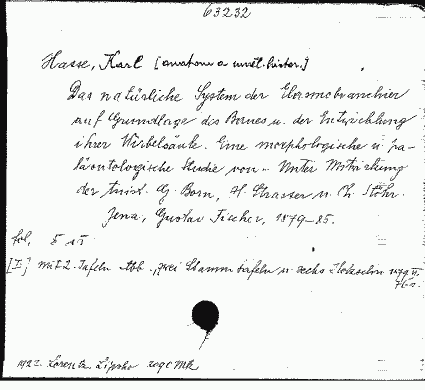 63232
Hasse, Karl [anatom a
Das natürliche System der Elasmobranchier
auf Grundlage des Baues u. der Entwicklung
ihrer Wirbelsäule. Eine morphologische u pa-
läontologische Studie von - Unter Mitwirkung
der G. Born, H. Strasser u. Ph. Stöhr.
Jena, Gustav Fischer, 1879-85.
fol.
[I] mit 2 Tafeln Abb., zwei Stammtafeln u sechs
1922. Lorentz Lipsko